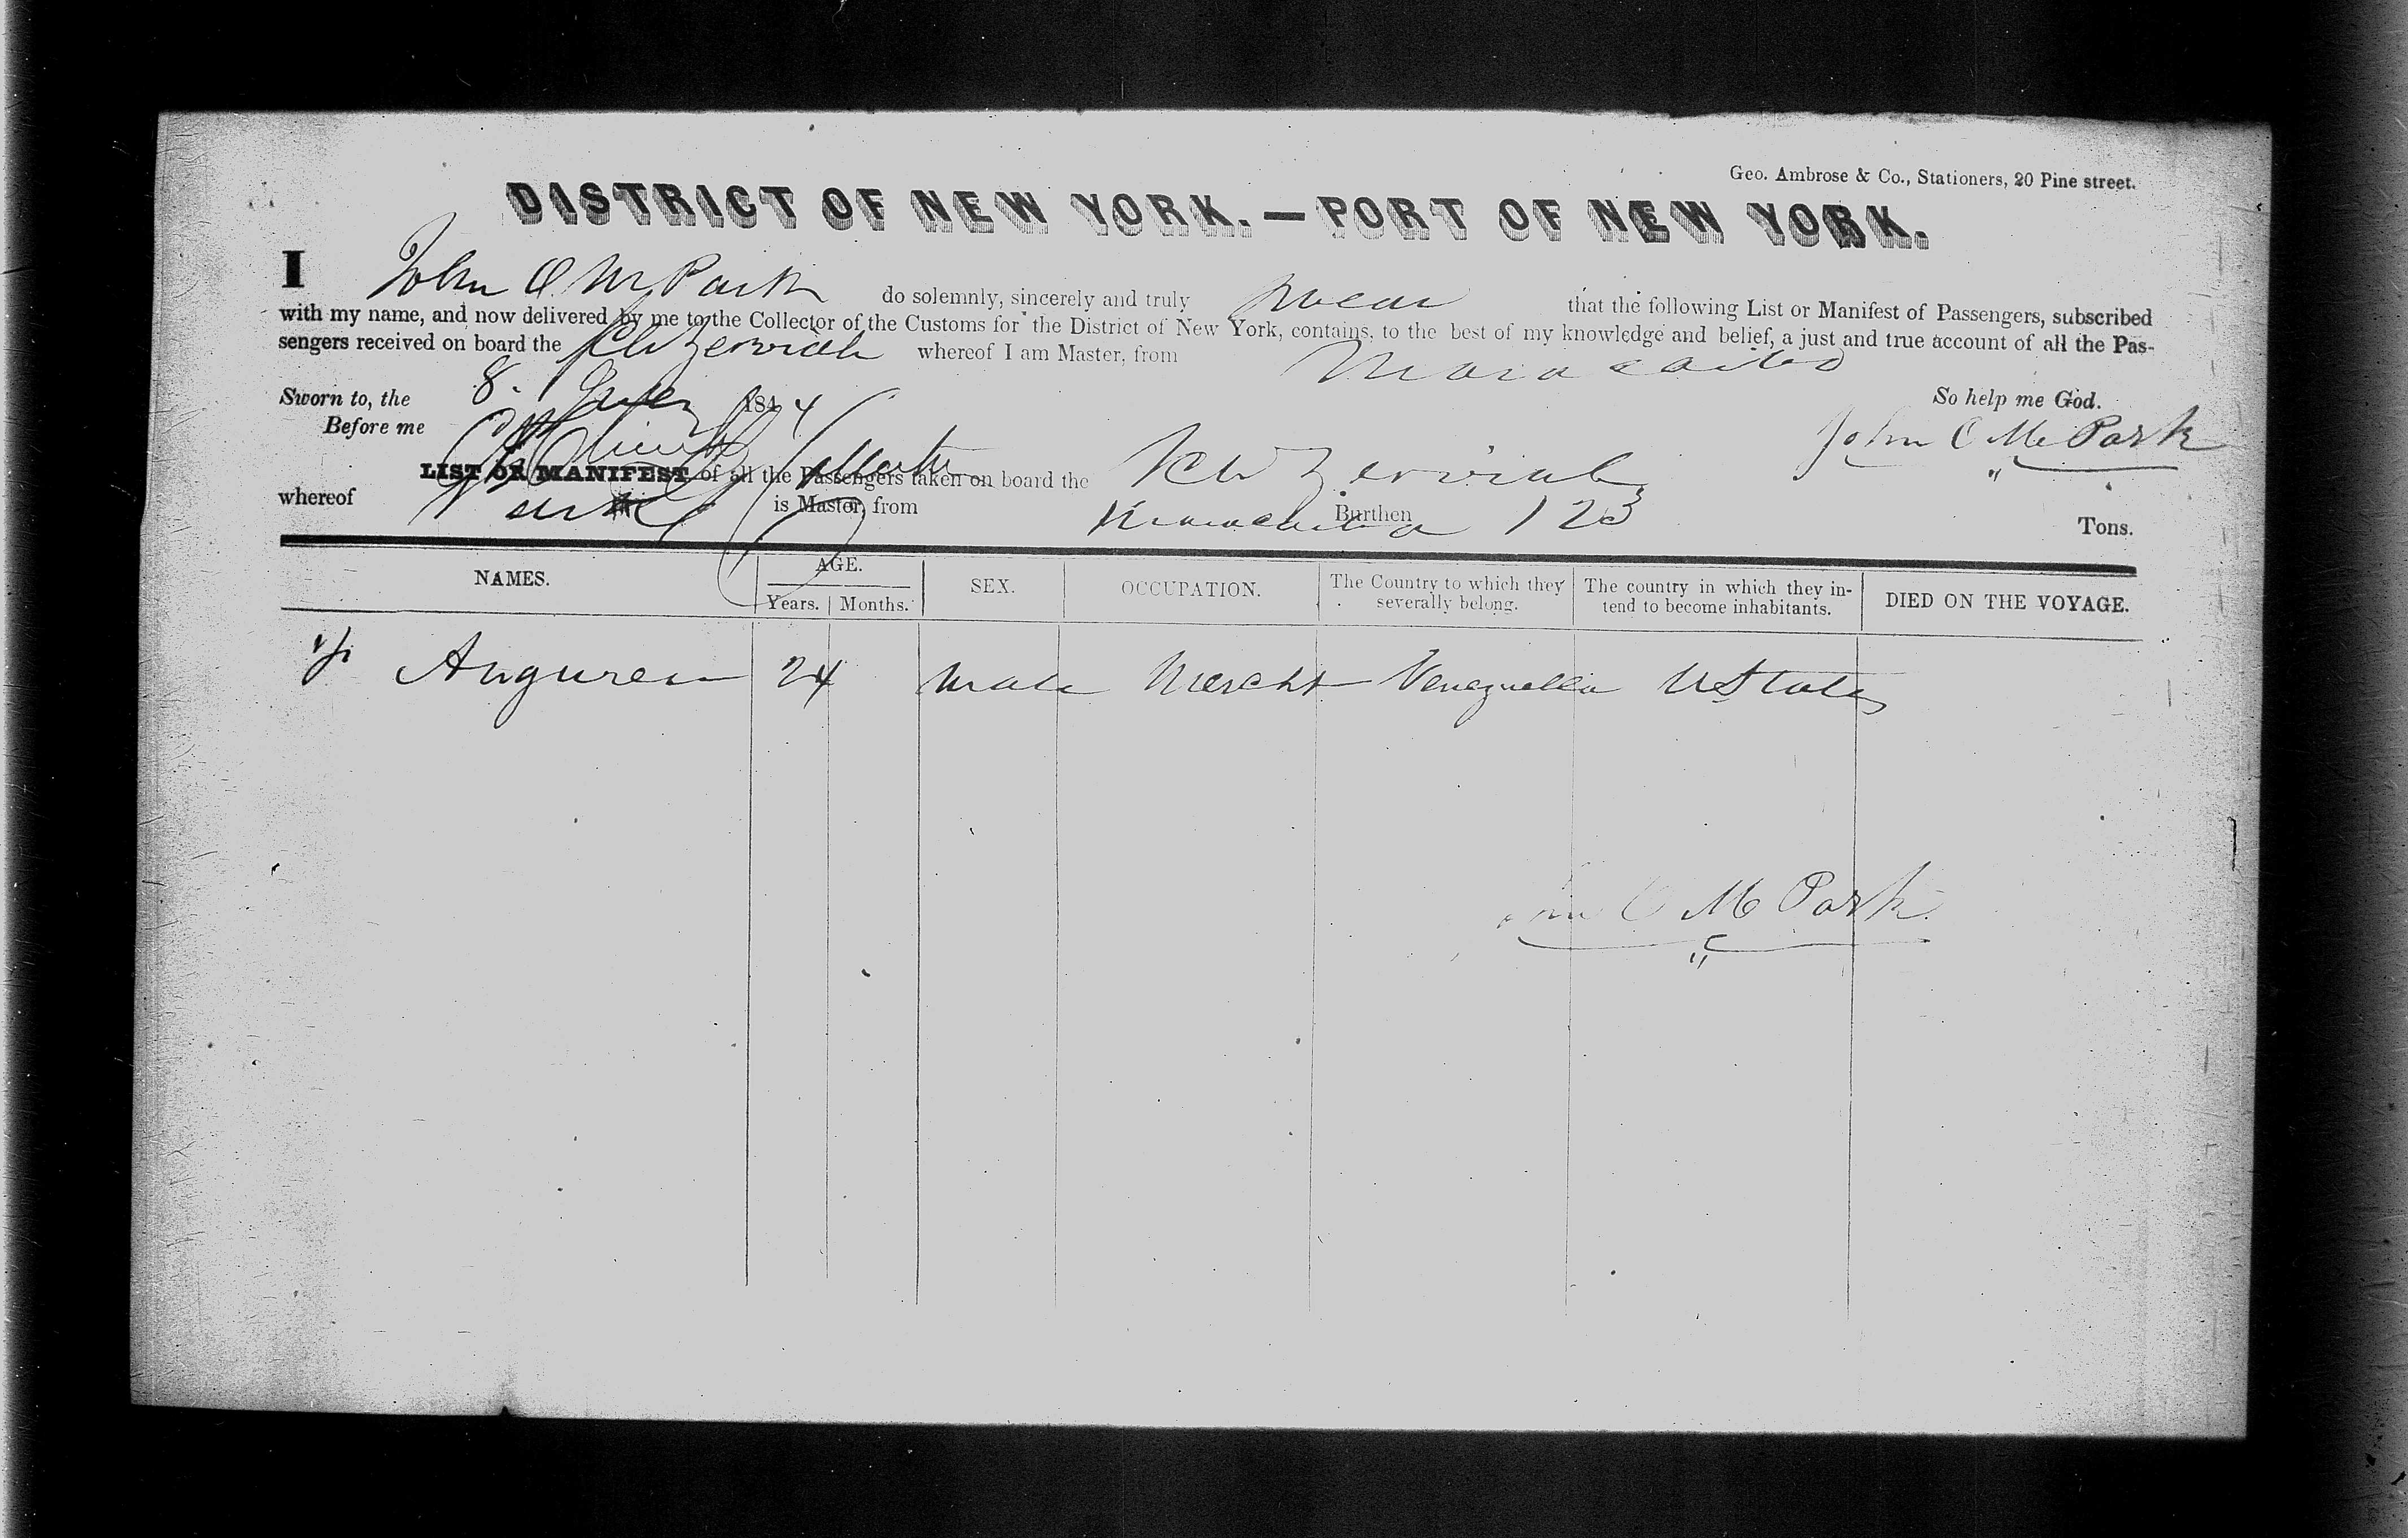 Geo. Ambrose & Co., Stationers, 20 Pine street.
DISTRICT OF NEW YORK.—PORT OF NEW YORK.
I John C McPark do solemnly, sincerely and truly swear that the following List or Manifest of Passengers, subscribed
with my name, and now delivered by me to the Collector of the Customs for the District of New York, contains, to the best of my knowledge and belief, a just and true account of all the Pas-
sengers received on board the whereof I am Master, from Maracaibo
Sworn to, the 8. 1844 So help me God.
Before me John C McPark
LIST OR MANIFEST of all the Passengers taken on board the
whereof is Master, from Maracaibo Burthen 123 Tons.
NAMES. AGE. SEX. OCCUPATION. The Country to which they severally belong. The country in which they in-tend to become inhabitants. DIED ON THE VOYAGE.
Years. Months.
24 Male Mercht Venezuela U States
John C McPark